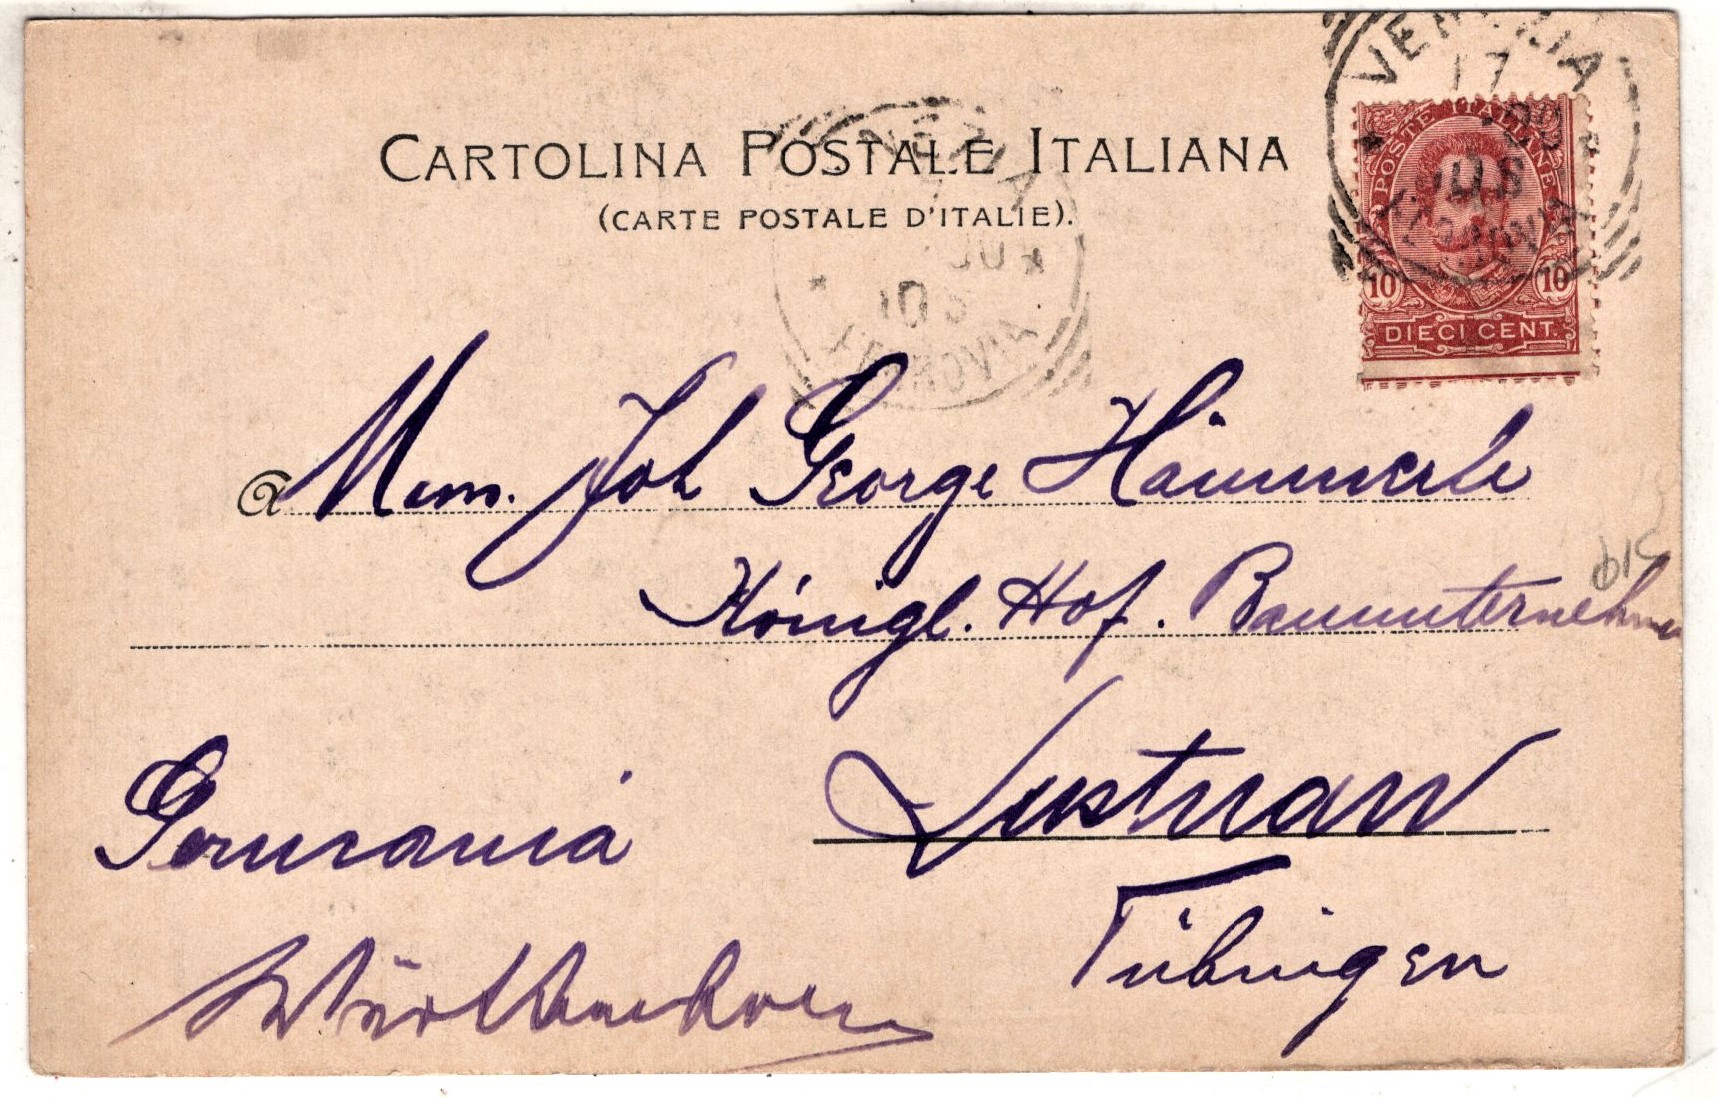 CARTOLINA POSTALE ITALIANA
(CARTE POSTALE D'ITALIE).
VENEZIA
17
POSTE ITALIANE
10 10
DIECI CENT.
a Joh George Hämmerle
Königl. Hof. Bauunternehmer
Lustnau
Tübingen
Germania
Württemberg